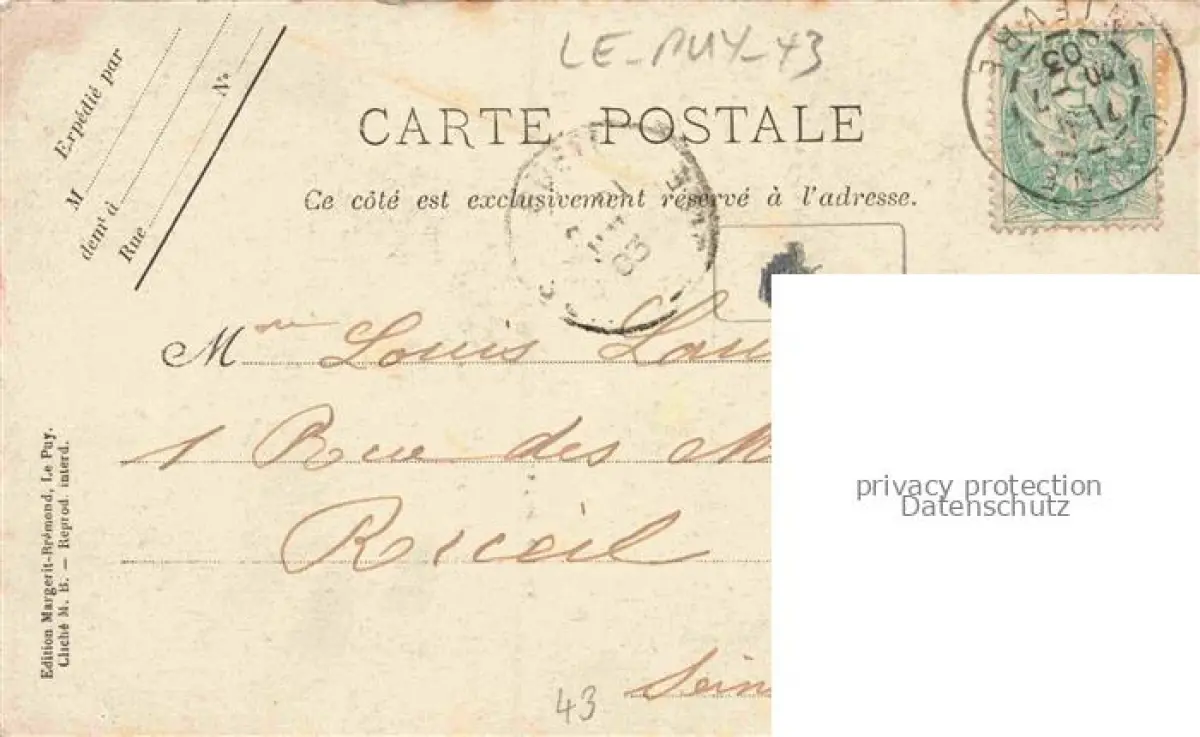 LE-PUY-43
CARTE POSTALE
Ce côté est exclusivement réservé à l'adresse.
Expédié par
M
demt à
Rue Nº
03
83
Mme Louis
1 Rue des M
Rueil
Sein
43
Edition Margerit-Brémond, Le Puy.
Cliché M. B. — Reprod. interd.
privacy protection
Datenschutz